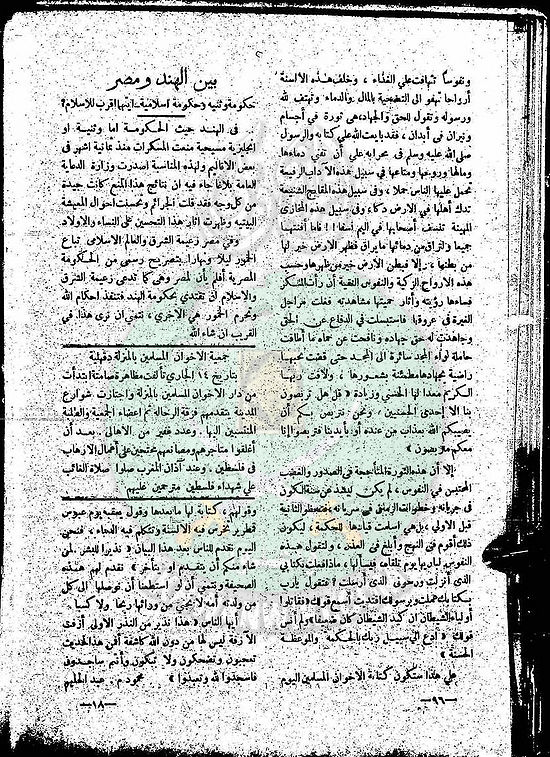 ونفوساً تهافت علي الفداء ، وخلف هذه الالسنة
أرواحا تهفو الى التضحية بالمال والدماء وتهتف لله
ورسوله وتقول للحق والجهاد، هى ثورة في أجسام
ونيران فى أبدان ، فقد بايعت الله علي كتابه والرسول
صلى الله عليه وسلم فى محرابه علي أن تفنى دماءها
ومالها وروحها ومتاعها في سبيل هذه الآداب الرفيعة
تحمل عليها الناس حملا ، وفى سبيل هذه المقابح الشنيعة
تدك أهلها فى الارض دكا، وفى سبيل هذه المخازى
المهينة تنسف أصحابها في اليم نسفا ! ! فاما أفنتها
جميعا وإلا من دمائها ما يراق فظهر الارض خير لها
من بطنها ، وإلا فبطن الارض خير من ظهرها وحسب
هذه الارواح الزكية والنفوس النقية أن رأت المنكر
فساءها رؤيته وأثار حميتها مشاهدته فغلت مراجل
الغيرة فى عروقها فاستبسلت في الدفاع عن الحق
وجاهدت له حق جهاده ونافحت عن حماه ما أطاقت
حاملة لواء المجد سائرة الى المجد حتى قضت نحبها
راضية بجهادها مطمئنة بشعورها ، ولاقت ربها
الكريم معدا لها الحسنى وزيادة « قل هل تربصون
بنا الا إحدى الحسنيين ، ونحن نتربص بكم أن
يصيبكم الله بعذاب من عنده أو بأيدينا فتربصوا إنا
معكم متربصون »
إلا أن هذه الثورة المتأججة فى الصدور والغضب
المحتبس في النفوس ، لم يكن ليشذ عن سنة الكون
فى جريانه وخطوات الزمان في سريانه فتضطر الثانية
قبل الاولي ، بل هى أسلمت قيادها للحكمة ، ليكون
ذلك أقوم فى النهج وأبلغ فى العذر، ولتقول هذه
النفوس لباريها يوم تلقاه، فيسألها ، ماذا فعلت بكتابي
الذى أنزلت ورسولى الذى أرسلت ؟ فتقول يارب
بكتابك عملت وبرسولك اقتديت أسمع قولك « فقاتلوا
أولياء الشيطان ان كيد الشيطان كان ضعيفا » ولم أنس
قولك « أدع الي سبيل ربك بالحكمة والموعظة
الحسنة »
علي هذا ستكون كتابة الأخوان المسلمين اليوم
— ٩٦ —
بين الهند ومصر
حكومة وثنيه وحكومة اسلامية .. ايتها اقرب للاسلام؟
.. فى الهند حيث الحكومة اما وثنية او
انجليزية مسيحية منعت المسكرات منذ ثمانية اشهر فى
بعض الاقاليم ولهذه المناسبة اصدرت وزارة الدعاية
العامة بلاغا جاء فيه ان نتائج هذا المنع كانت جيدة
من كل وجه فقد قلت الجرائم وتحسنت احوال المعيشة
البيتيه وظهرت اثار هذا التحسين على النساء والاولاد
وفي مصر زعيمة الشرق والعالم الاسلامى تباع
الخمور ليلا ونهارا بتصريح رسمى من الحكومة
المصرية أفلم يأن لمصر وهى كما تدعى زعيمة الشرق
والاسلام ان تقتدى بحكومة الهند فتنفذ احكام الله
وتحرم الخمور هى الاخرى ، نتمنى ان نرى هذا في
القريب ان شاء الله
جمعية الاخوان المسلمين بالمنزلة دقهلية
بتاريخ ١٤ الجارى تألفت مظاهرة صامتة ابتدأت
من دار الاخوان المسلمين بالمنزلة واجتازت شوارع
المدينة تتقدمهم فرقة الرحالة ثم اعضاء الجمعية والطلبة
المنتسبين اليها ، وعدد غفير من الاهالى .. بعد أن
أغلقوا متاجرهم ومصانعهم محتجين على أعمال الارهاب
فى فلسطين . وعند أذان المغرب صلوا صلاة الغائب
علي شهداء فلسطين مترحمين عليهم
وقولهم ، كتابة لها ما بعدها وقول يعقبه يوم عبوس
قمطرير تخرس فيه الالسنة وتتكلم فيه الدماء ، فنحن
اليوم نقدم للناس بعد هذا البيان « نذيرا للبشر . لمن
شاء منكم أن يتقدم او يتأخر » نقدم لهم هذه
الصحيفة ونتمنى أن لو استطعنا أن نوصلها الى كل
من ولدته أمه لا نبغي من ورائها ربحا ولا كسبا .
أيها الناس « هذا نذير من النذر الاولى أزفت
الآزفة ليس لها من دون الله كاشفة أفمن هذا الحديث
تعجبون وتضحكون ولا تبكون وأنتم سامدون
فاسجدوا لله وتعبدوا » محمود م . عبد الحليم
— ١٨ —